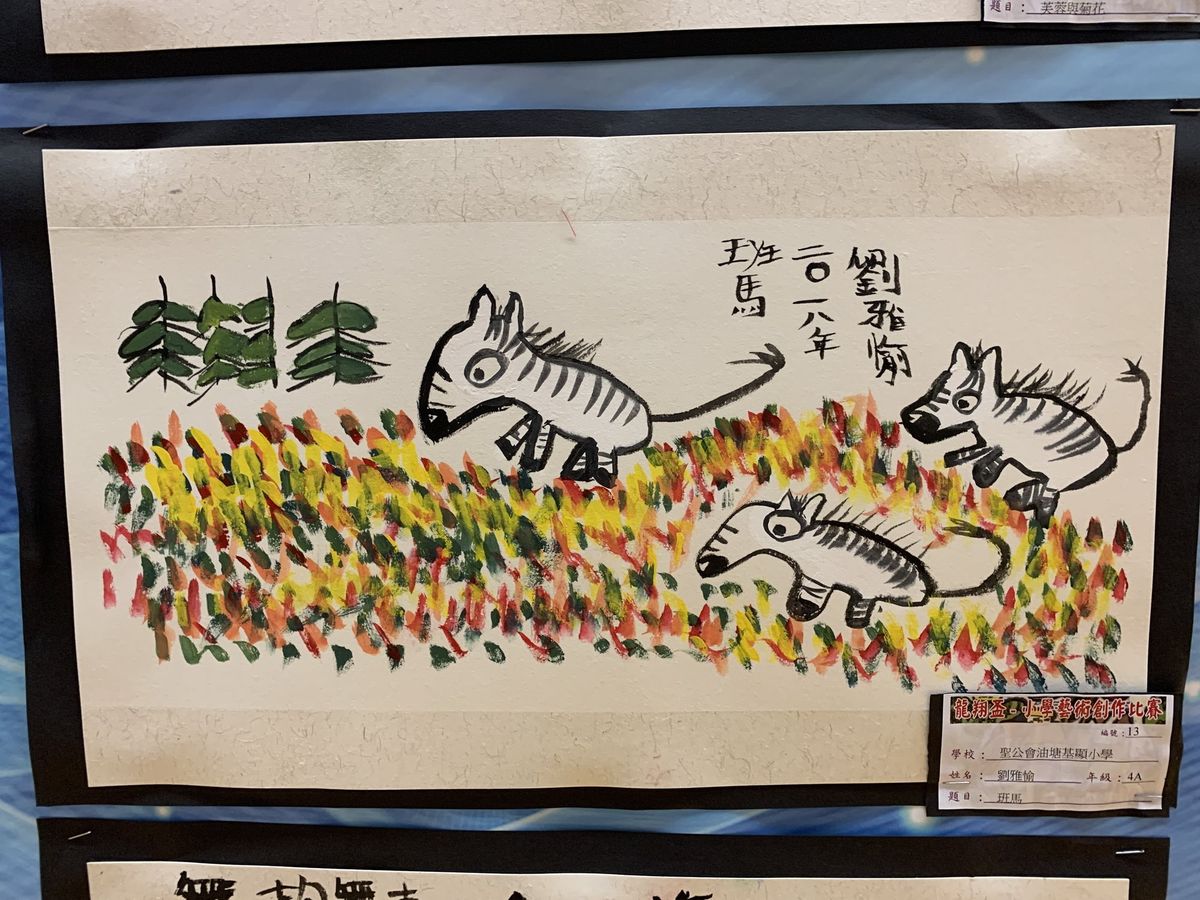 題目：芙蓉與菊花
劉雅愉
二〇一八年
班馬
龍翔盃 - 小學藝術創作比賽
編號：13
學校：聖公會油塘基顯小學
姓名：劉雅愉 年級：4A
題目：班馬